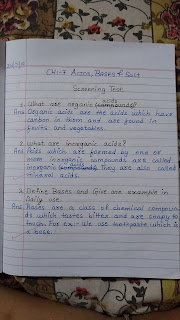 CH-7 Acids, Bases & Salt
Screening Test
1. What are organic acids?
Ans. Organic acids are the acids which have
carbon in them and are found in
fruits and vegetables.
2. What are inorganic acids?
Ans. Acids which are formed by one or
more inorganic compounds are called
inorganic. They are also called
mineral acids.
3. Define Bases and Give one example in
Daily use.
Ans. Bases are a class of chemical compoun-
ds which tastes bitter and are soapy to
touch. For ex - We use toothpaste which is
a base.